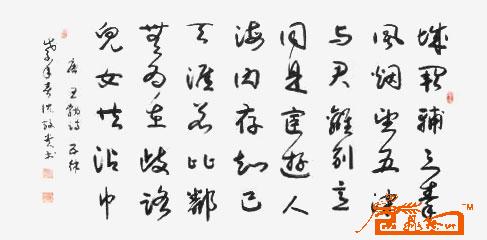 城阙辅三秦
风烟望五津
与君离别意
同是宦游人
海内存知己
天涯若比邻
无为在歧路
儿女共沾巾
唐王勃诗